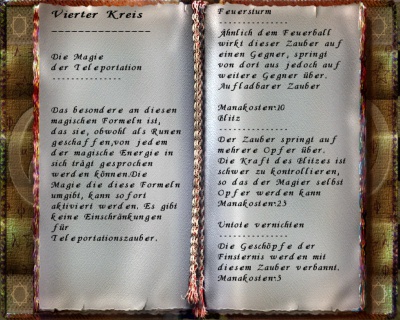 Vierter Kreis
------------------
Die Magie
der Teleportation
---------------
Das besondere an diesen
magischen Formeln ist,
das sie, obwohl als Runen
geschaffen,von jedem
der magische Energie in
sich trägt gesprochen
werden können.Die
Magie die diese Formeln
umgibt, kann sofort
aktiviert werden. Es gibt
keine Einschränkungen
für
Teleportationszauber.
Feuersturm
---------------
Ähnlich dem Feuerball
wirkt dieser Zauber auf
einen Gegner, springt
von dort aus jedoch auf
weitere Gegner über.
Aufladbarer Zauber
Manakosten:10
Blitz
---------------
Der Zauber springt auf
mehrere Opfer über.
Die Kraft des Blitzes ist
schwer zu kontrollieren,
so das der Magier selbst
Opfer werden kann
Manakosten:23
Untote vernichten
---------------
Die Geschöpfe der
Finsternis werden mit
diesem Zauber verbannt.
Manakosten:3